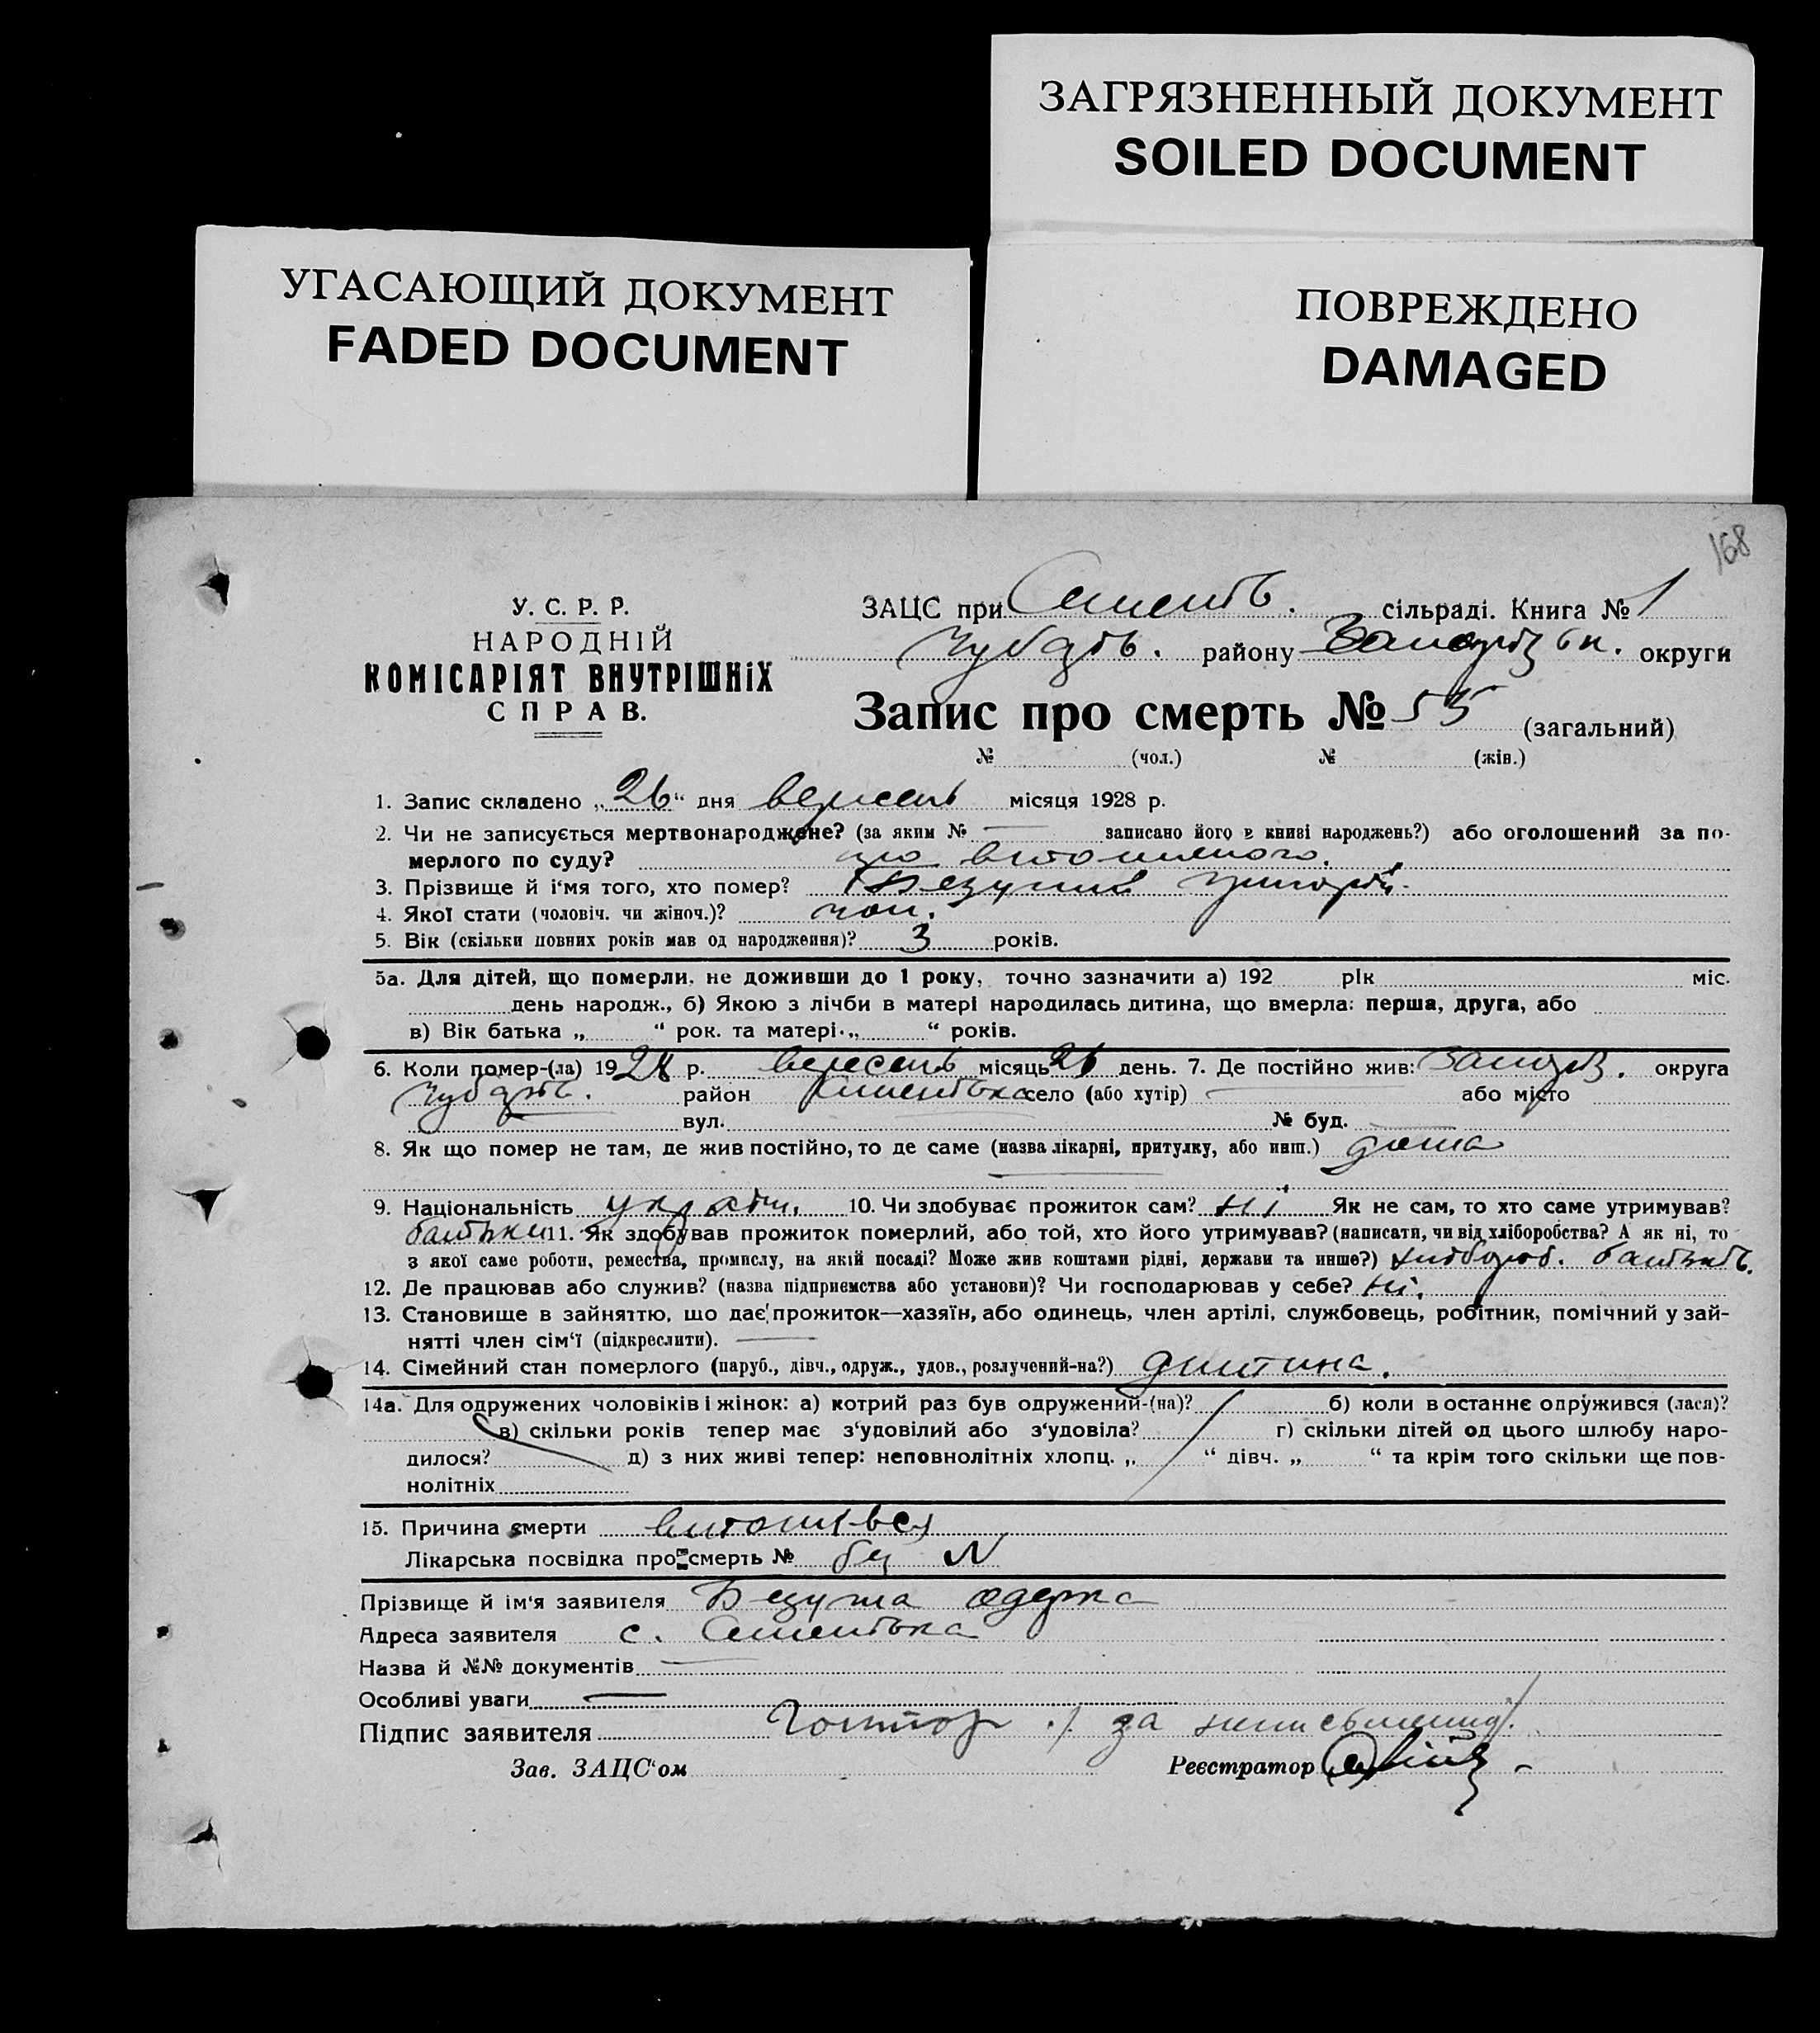 ЗАГРЯЗНЕННЫЙ ДОКУМЕНТ
SOILED DOCUMENT
УГАСАЮЩИЙ ДОКУМЕНТ
FADED DOCUMENT
ПОВРЕЖДЕНО
DAMAGED
168
У. С. Р. Р.
НАРОДНІЙ
КОМІСАРІЯТ ВНУТРІШНіХ
СПРАВ.
ЗАЦС при сільраді. Книга № 1
Чубарів. району округи
Запис про смерть № 55 (загальний)
№ (чол.) № (жін.)
1. Запис складено „26“ дня вересень місяця 1928 р.
2. Чи не записується мертвонароджене? (за яким № — записано його в книві народжень?) або оголошений за по-
мерлого по суду?
3. Прізвище й і'мя того, хто помер? Григорій.
4. Якої стати (чоловіч. чи жіноч.)? чол.
5. Вік (скільки повних років мав од народження)? 3 років.
5а. Для дітей, що померли, не доживши до 1 року, точно зазначити а) 192 рік міс.
день народж., б) Якою з лічби в матері народилась дитина, що вмерла: перша, друга, або
в) Вік батька „ “ рок. та матері „ “ років.
6. Коли помер-(ла) 1928 р. вересень місяць 26 день. 7. Де постійно жив: округа
Чубарів. район село (або хутір) — або місто
вул. № буд.
8. Як що помер не там, де жив постійно, то де саме (назва лікарні, притулку, або инш.) дома
9. Національність україн. 10. Чи здобуває прожиток сам? ні Як не сам, то хто саме утримував?
батьки 11. Як здобував прожиток померлий, або той, хто його утримував? (написати, чи від хліборобства? А як ні, то
з якої саме роботи, ремества, промислу, на якій посаді? Може жив коштами рідні, держави та инше?) хлібороб. батьків.
12. Де працював або служив? (назва підприємства або установи)? Чи господарював у себе? ні.
13. Становище в зайняттю, що дає прожиток—хазяїн, або одинець, член артілі, службовець, робітник, помічний у зай-
нятті член сім'ї (підкреслити). —
14. Сімейний стан померлого (паруб., дівч., одруж., удов., розлучений-на?) дитина.
14а. Для одружених чоловіків і жінок: а) котрий раз був одружений-(на)? б) коли востаннє одружився (лася)?
в) скільки років тепер має з'удовілий або з'удовіла? г) скільки дітей од цього шлюбу наро-
дилося? д) з них живі тепер: неповнолітніх хлопц. „ “ дівч. „ “ та крім того скільки ще пов-
нолітніх
15. Причина смерти
Лікарська посвідка про смерть №
Прізвище й ім'я заявителя
Адреса заявителя с.
Назва й №№ документів —
Особливі уваги —
Підпис заявителя за
Зав. ЗАЦС'ом Реєстратор